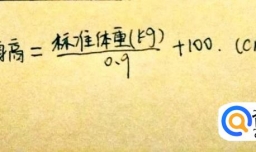 高 = 标准体重(kg) / 0.9 + 100. (c